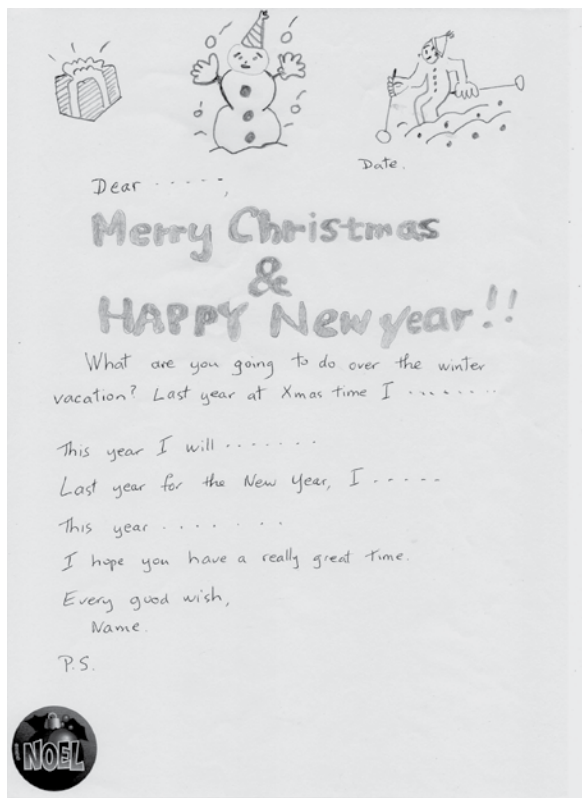 Date.
Dear . . . . . ,
Merry Christmas
&
HAPPY New year!!
What are you going to do over the winter
vacation? Last year at Xmas time I . . . . . . . .
This year I will . . . . . . .
Last year for the New Year, I . . . . .
This year . . . . . . .
I hope you have a really great time.
Every good wish,
Name.
P.S.
NOEL